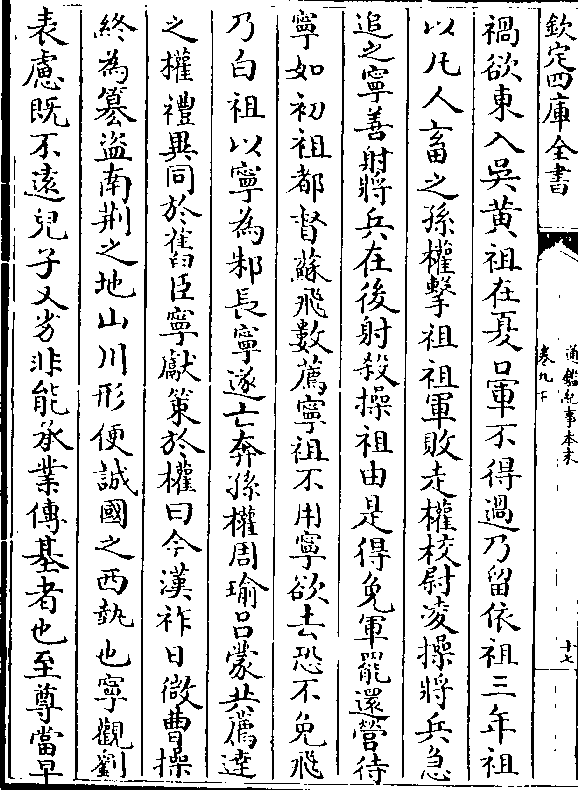 欽定四庫全書
通鑑紀事本末
卷九下
十七
禍欲東入吳黄祖在夏口軍不得過乃留依祖三年祖
以凡人畜之孫權擊祖祖軍敗走權校尉凌操將兵急
追之寧善射將兵在後射殺操祖由是得免軍罷還營待
寧如初祖都督蘇飛數薦寧祖不用寧欲去恐不免飛
乃白祖以寧為邾長寧遂亡奔孫權周瑜吕蒙共薦達
之權禮異同於舊臣寧獻策於權曰今漢祚日微曹操
終為簒盜南荆之地山川形便誠國之西埶也寧觀劉
表慮既不遠兒子又劣非能承業傳基者也至尊當早